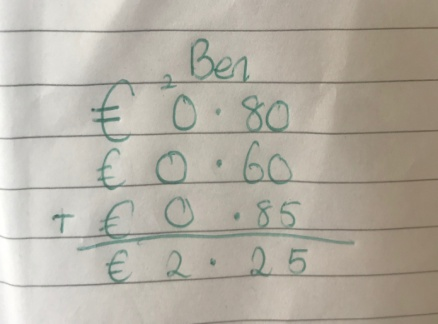 Ben
2
€ 0.80
€ 0.60
+ € 0.85
€ 2.25